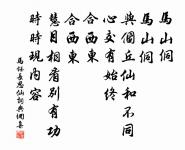 馬山侗
馬山侗
與個丘仙和不同
心交有始終
合西東
合西東
慧目相看別有功
時時現內容
馬怀長思仙詞典個集